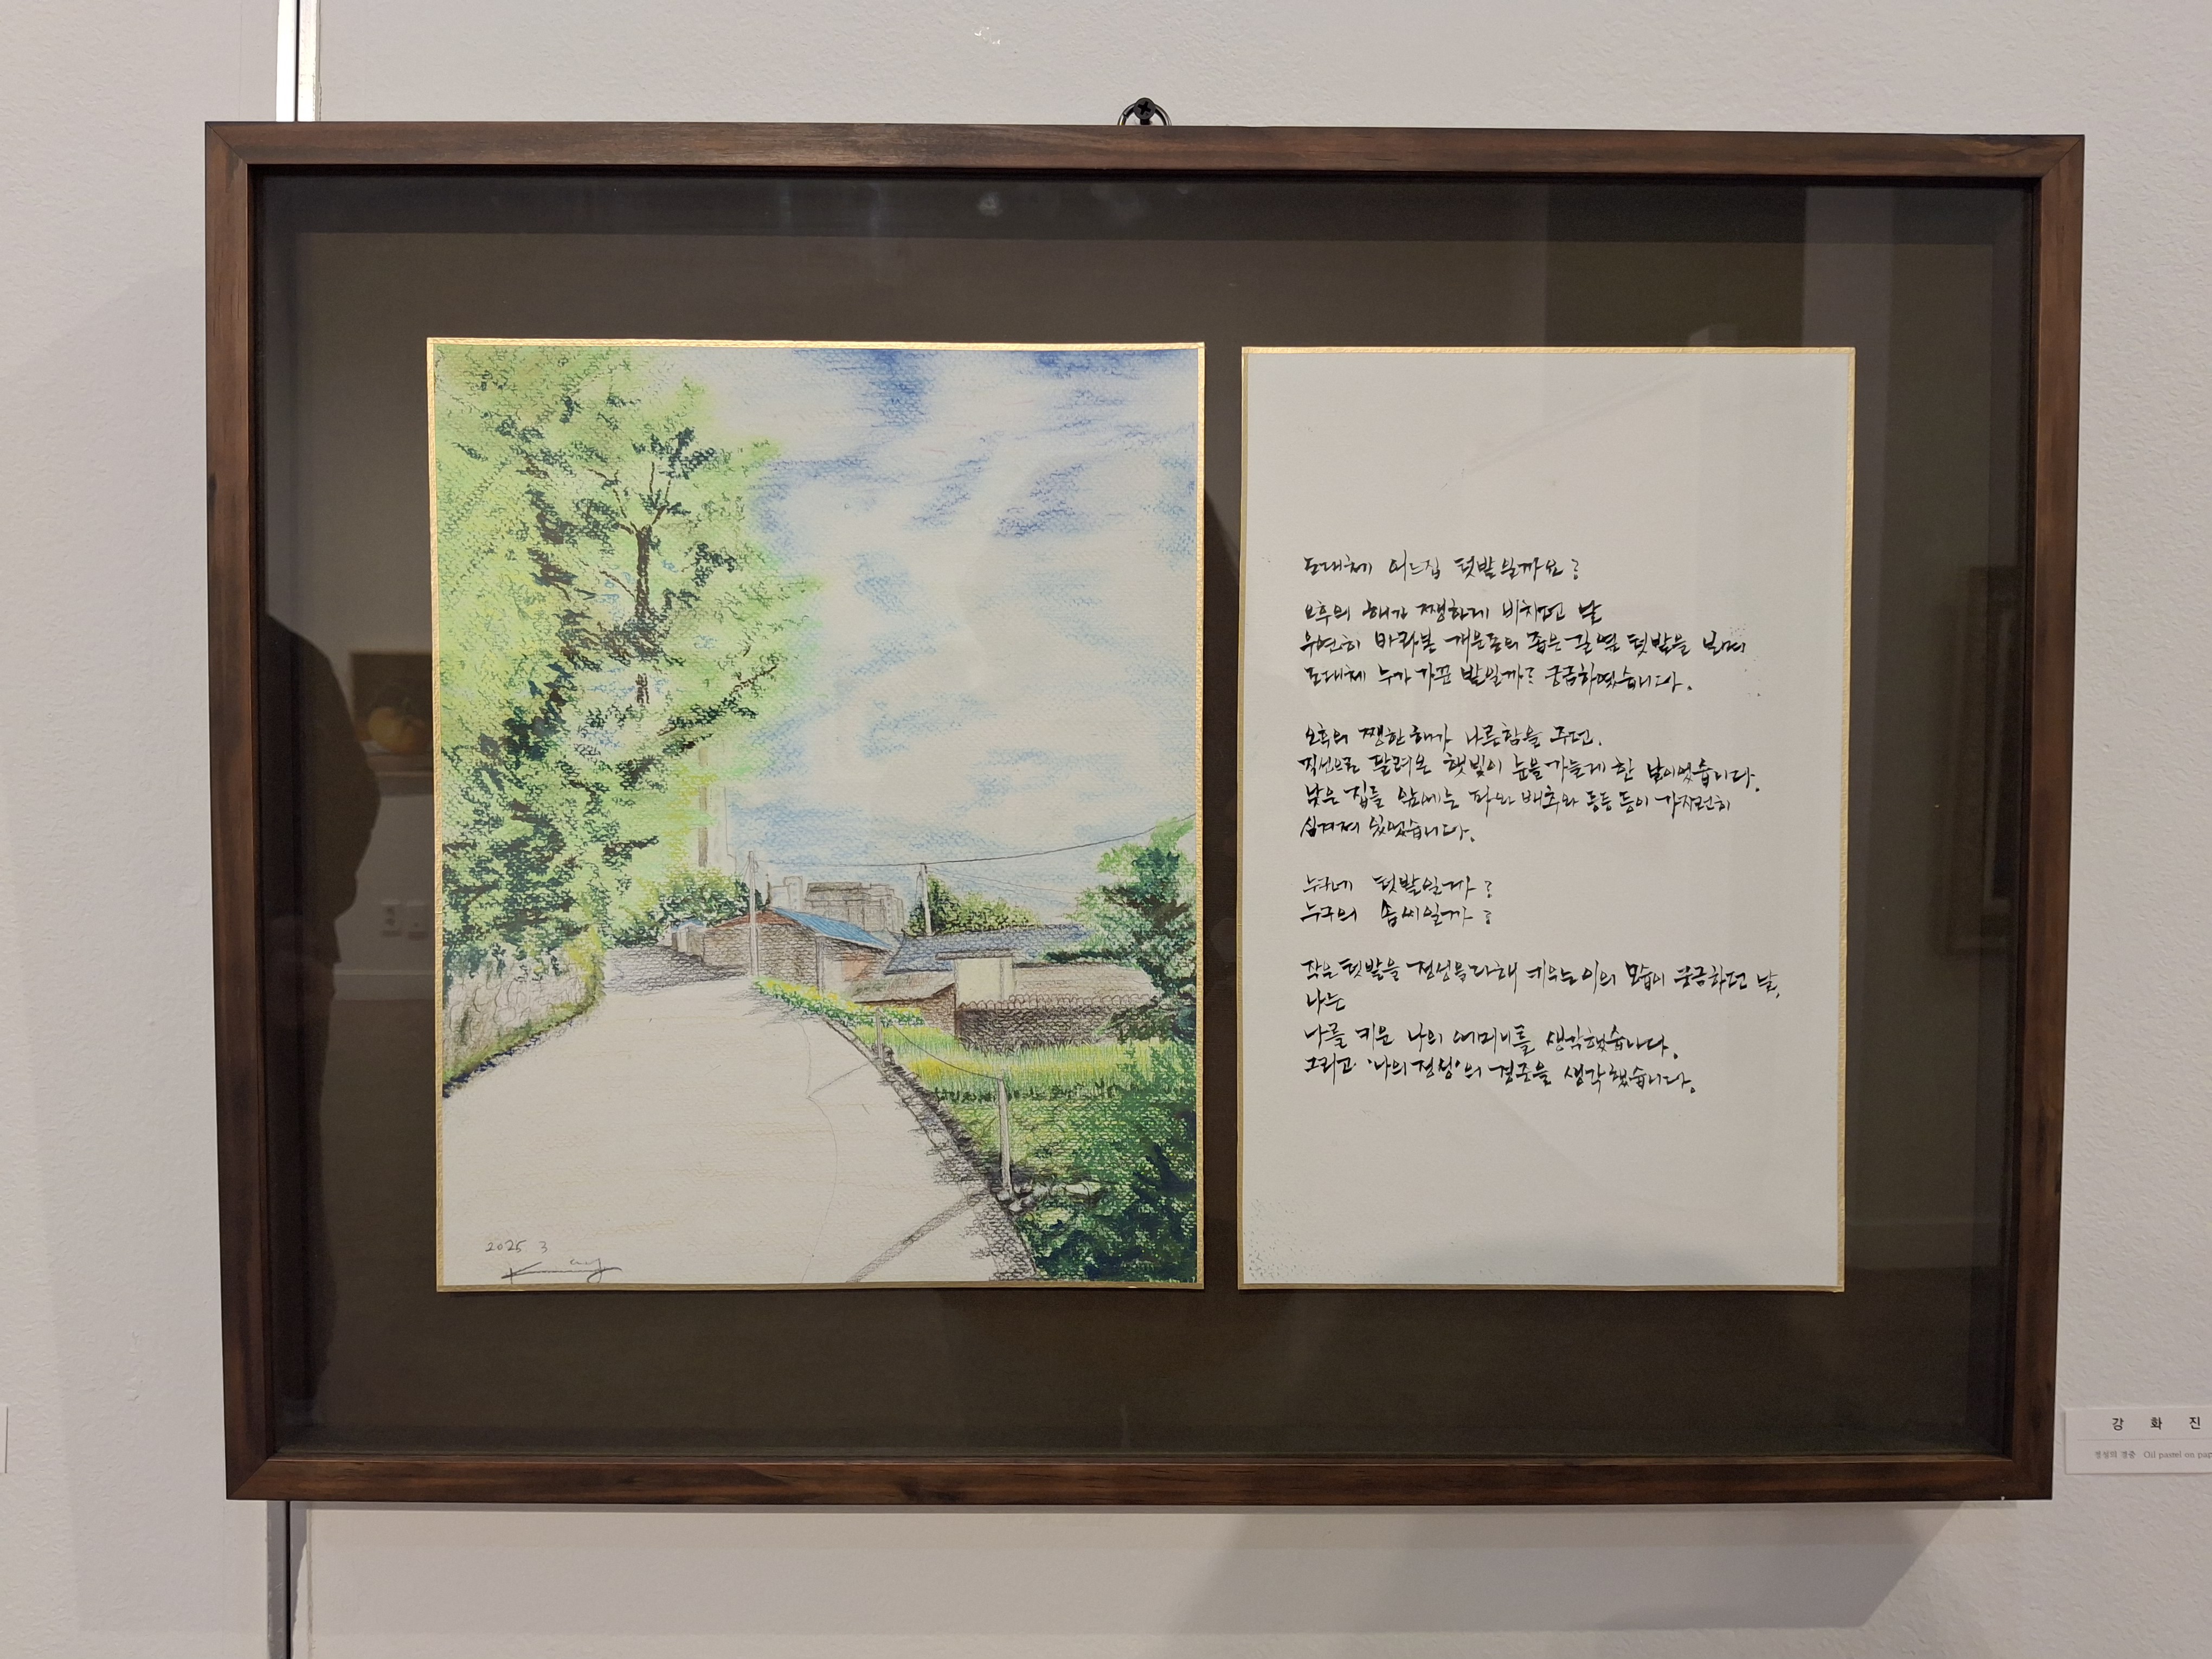 도대체 어느집 텃밭일까요?
오후의 해가 쨍하게 비치던 날
우연히 바라본 개운동의 좁은 길 옆 텃밭을 보며
도대체 누가 가꾼 밭일까? 궁금하였습니다.
오후의 쨍한 해가 나른함을 주던,
직선으로 달려온 햇빛이 눈을 가늘게 한 날이었습니다.
낮은 집들 앞에는 파와 배추와 등등 등이 가지런히
심겨져 있었습니다.
누구네 텃밭일까?
누구의 솜씨일까?
작은 텃밭을 정성을 다해 키우는 이의 모습이 궁금하던 날,
나는
나를 키운 나의 어머니를 생각했습니다.
그리고 '나의 정성'의 경중을 생각했습니다.
2025 3
강 화 진
정성의 경중 Oil pastel on pap